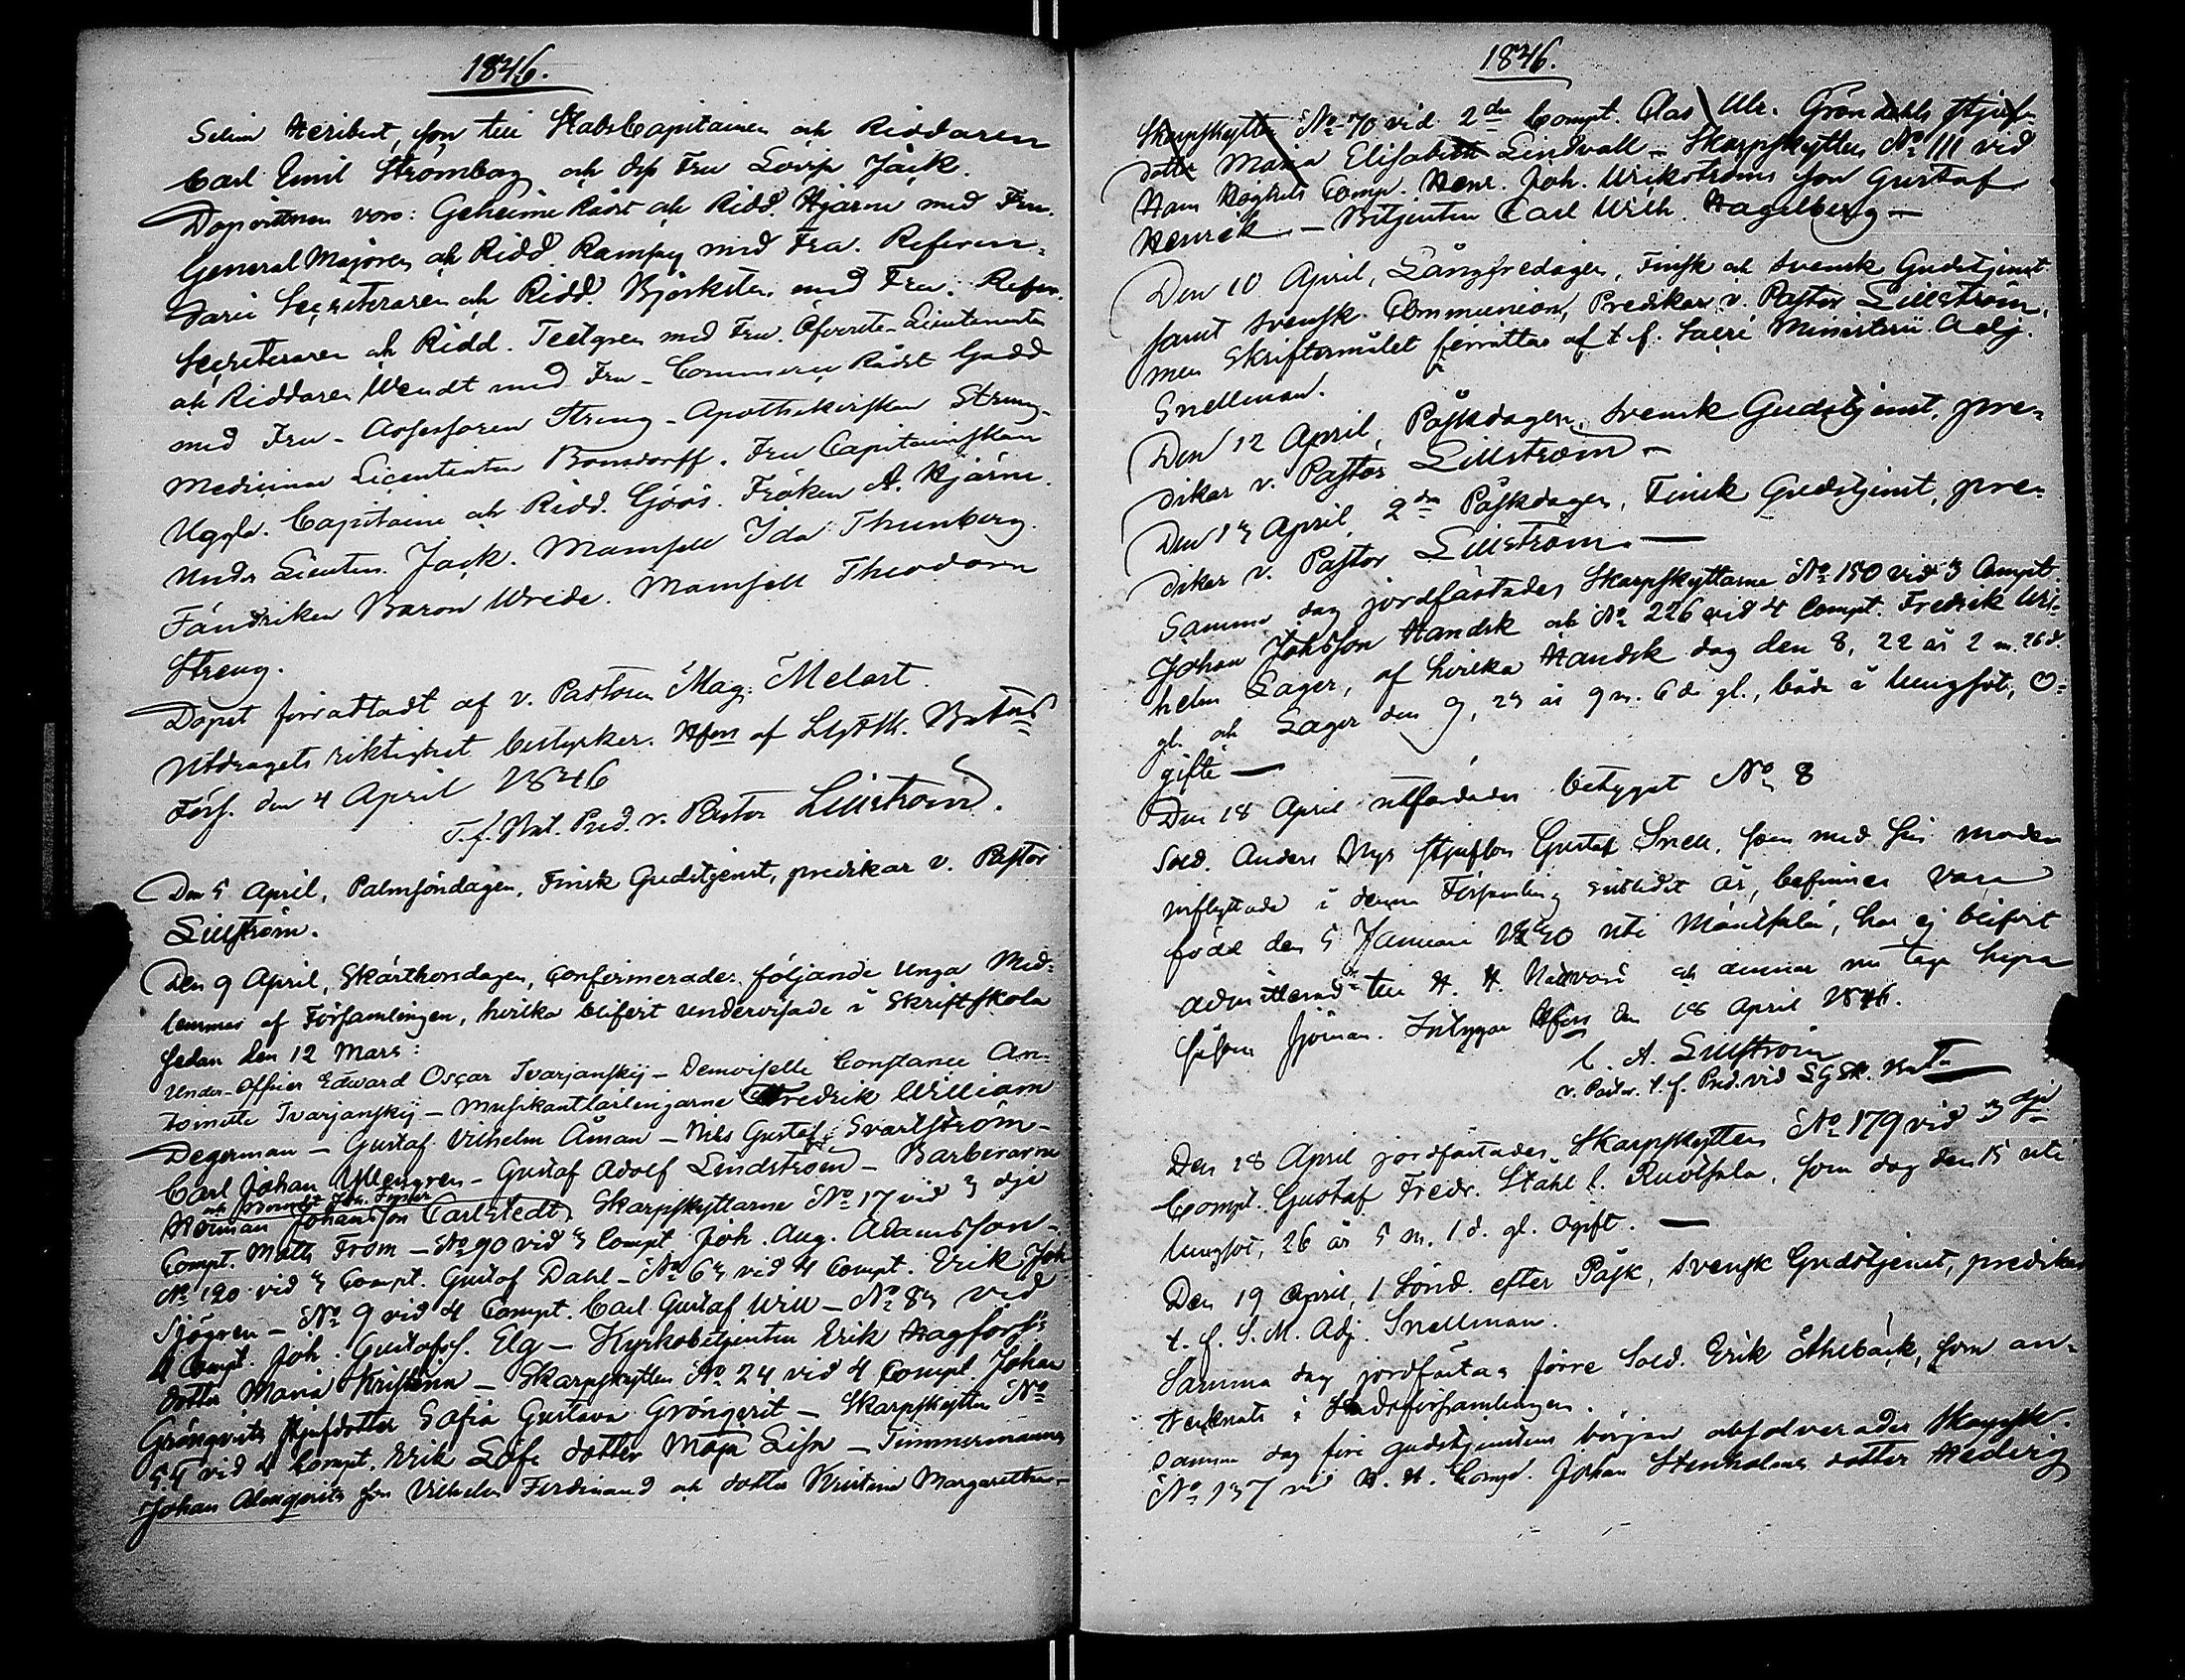 1846.
Selim Heribert, son till StabsCapitainen och Riddaren
Carl Emil Strömberg och dess Fru Lovisa Jack.
Dopvittnen voro: Geheime Rådet och Ridd. Hjärne med Fru.
General Majoren och Ridd. Ramsay med Fru. Referen-
darie Secreteraren och Ridd. Björksten med Fru. Refer.
Secreteraren och Ridd. Teetgren med Fru. Öfverste-Lieutenanten
och Riddaren Wendt med Fru - Commerce Rådet Gadd
med Fru - Assessoren Streng - Apothekerskan Streng -
Medicine Licentiaten Bonsdorff. Fru Capitainskan
Uggla. Capitaine och Ridd. Göös. Fröken A. Hjärne.
Under Lieuten. Jack. Mamsell Ida Thunberg.
Fändriken Baron Wrede. Mamsell Theodora
Streng.
Dopet förrättadt af v. Pastoren Mag. Melart.
Utdragets riktighet bestyrker. Hfors af LGFSk. Bat:ns
Förs. den 4 April 1846
T. f. Bat. Pred. v. Pastor Lillström.
Den 5 April, Palmsöndagen, Finsk Gudstjenst, predikar v. Pastor
Lillström.
Den 9 April, Skärthorsdagen, confirmerades följande unga Med-
lemmar af Församlingen, hvilka blifvit undervisade i Skriftskola
sedan den 12 Mars:
Under-Officer Edward Oscar Ivarjanskij - Demoiselle Constance An-
toinette Ivarjanskij - Musikantlärlingarne Fredrik William
Degerman - Gustaf Vilhelm Åman - Nils Gustaf Svartström -
Carl Johan Yllengren - Gustaf Adolf Lindström - Barberarne
och
Herman Johansson Carlstedt, Skarpskyttarne No 17 vid 3 dje
Compt. Matts From - No 90 vid 3 Compt Joh. Aug. Adamsson -
No 120 vid 3 Compt. Gustaf Dahl - No 63 vid 4 Compt. Erik Joh.
Sjögren - No 9 vid 4 Compt. Carl Gustaf Will - No 83 vid
4 Compt. Joh. Gustafss. Elg - Kyrkobetjenten Erik Hagfors's
dotter Maria Kristina - Skarpskytten No 24 vid 4 Compt. Johan
Grönqvists stjufdotter Sofia Gustava Grönqvist - Skarpskytten No
54 vid 4 Compt. Erik Löfs dotter Maja Lisa - Timmermannen
Johan Almqvists son Vilhelm Ferdinand och dotter Kristina Margaretha -
1846.
Skarpskytten No 70 vid 2dra Compt. Clas Ulr. Gröndahls stjuf-
dotter Maria Elisabeth Lindvall - Skarpskytten No 111 vid
Hans Höghets Comp. Henr. Joh. Ulrikströms son Gustaf
Henrik - Betjenten Carl Wilh. Hagelberg -
Den 10 April, Långfredagen, Finsk och Svensk Gudstjenst
samt Svensk Communion, Predikar v. Pastor Lillström,
men Skriftermålet förrättas af t. f. Sacri Ministerii Adj.
Snellman.
Den 12 April, Påskdagen, Svensk Gudstjenst, pre-
dikar v. Pastor Lillström -
Den 13 April, 2dra Påskdagen, Finsk Gudstjenst, pre-
dikar v. Pastor Lillström. -
Samma dag jordfästades Skarpskyttarne No 150 vid 3 Compt.
Johan Johsson Handsk och No 226 vid 4 Compt. Fredrik Wil-
helm Lager, af hvilka Handsk dog den 8, 22 år 2 m. 26 d.
gl. och Lager den 9, 23 år 9 m. 6 d. gl., både i lungsot, O-
gifte -
Den 18 April utfärdades betyget No 8
Sold. Anders Nys stjufson Gustaf Snell, som med sin moder
inflyttade i denna Församling sistlidet år, befinnes vara
född den 5 Januari uti Mäntsälä, har ej blifvit
admitterad till H. H. Nattvard och ämnar nu taga hyra
såsom sjöman. Intygar Hfors den 18 April 1846.
C. A. Lillström
v. Pastor. t. f. Pred. vid LGSk. Bat:n
Den 18 April jordfästades Skarpskytten No 179 vid 3 dje
Compt. Gustaf Fredr. Stahl f. Ruotsala, som dog den 15 uti
lungsot, 26 år 5 m. 1 d. gl. ogift. -
Den 19 April, 1 Sönd. efter Påsk, Svensk Gudstjenst, predikar
t. f. S. M. Adj. Snellman.
Samma dag jordfästas förre Sold. Erik Åhlbäck, som an-
tecknats i Stadsförsamlingen.
Samma dag före gudstjenstens början absolverades Skarpsk.
No 137 vid H. H. Comp. Johan Stenholms dotter Hedvig